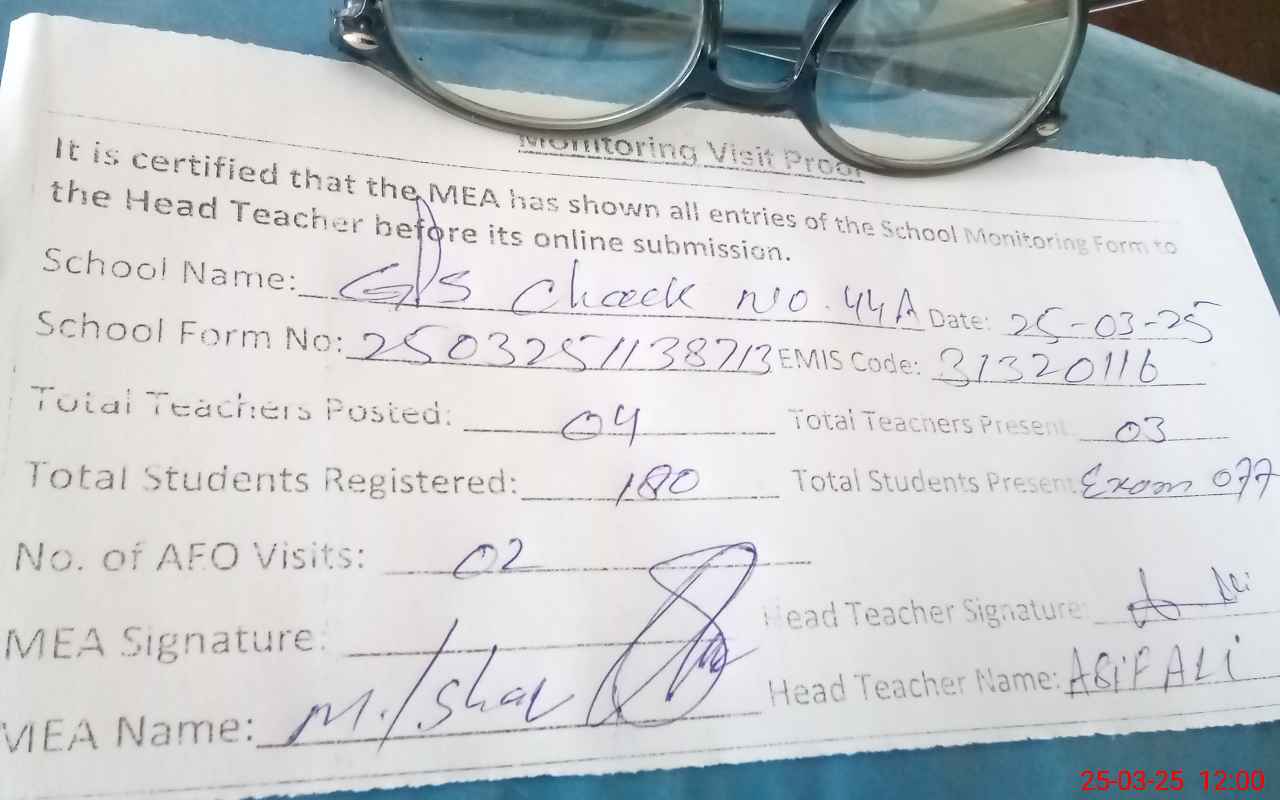 Monitoring Visit Proof
It is certified that the MEA has shown all entries of the School Monitoring Form to
the Head Teacher before its online submission.
School Name: GPS Chack No. 44A Date: 25-03-25
School Form No: 2503251138713 EMIS Code: 31320116
Total Teachers Posted: 04 Total Teachers Present: 03
Total Students Registered: 180 Total Students Present: Exam 077
No. of AEO Visits: 02
MEA Signature: Head Teacher Signature:
MEA Name: M. Head Teacher Name: ASIF ALi
25-03-25 12:00